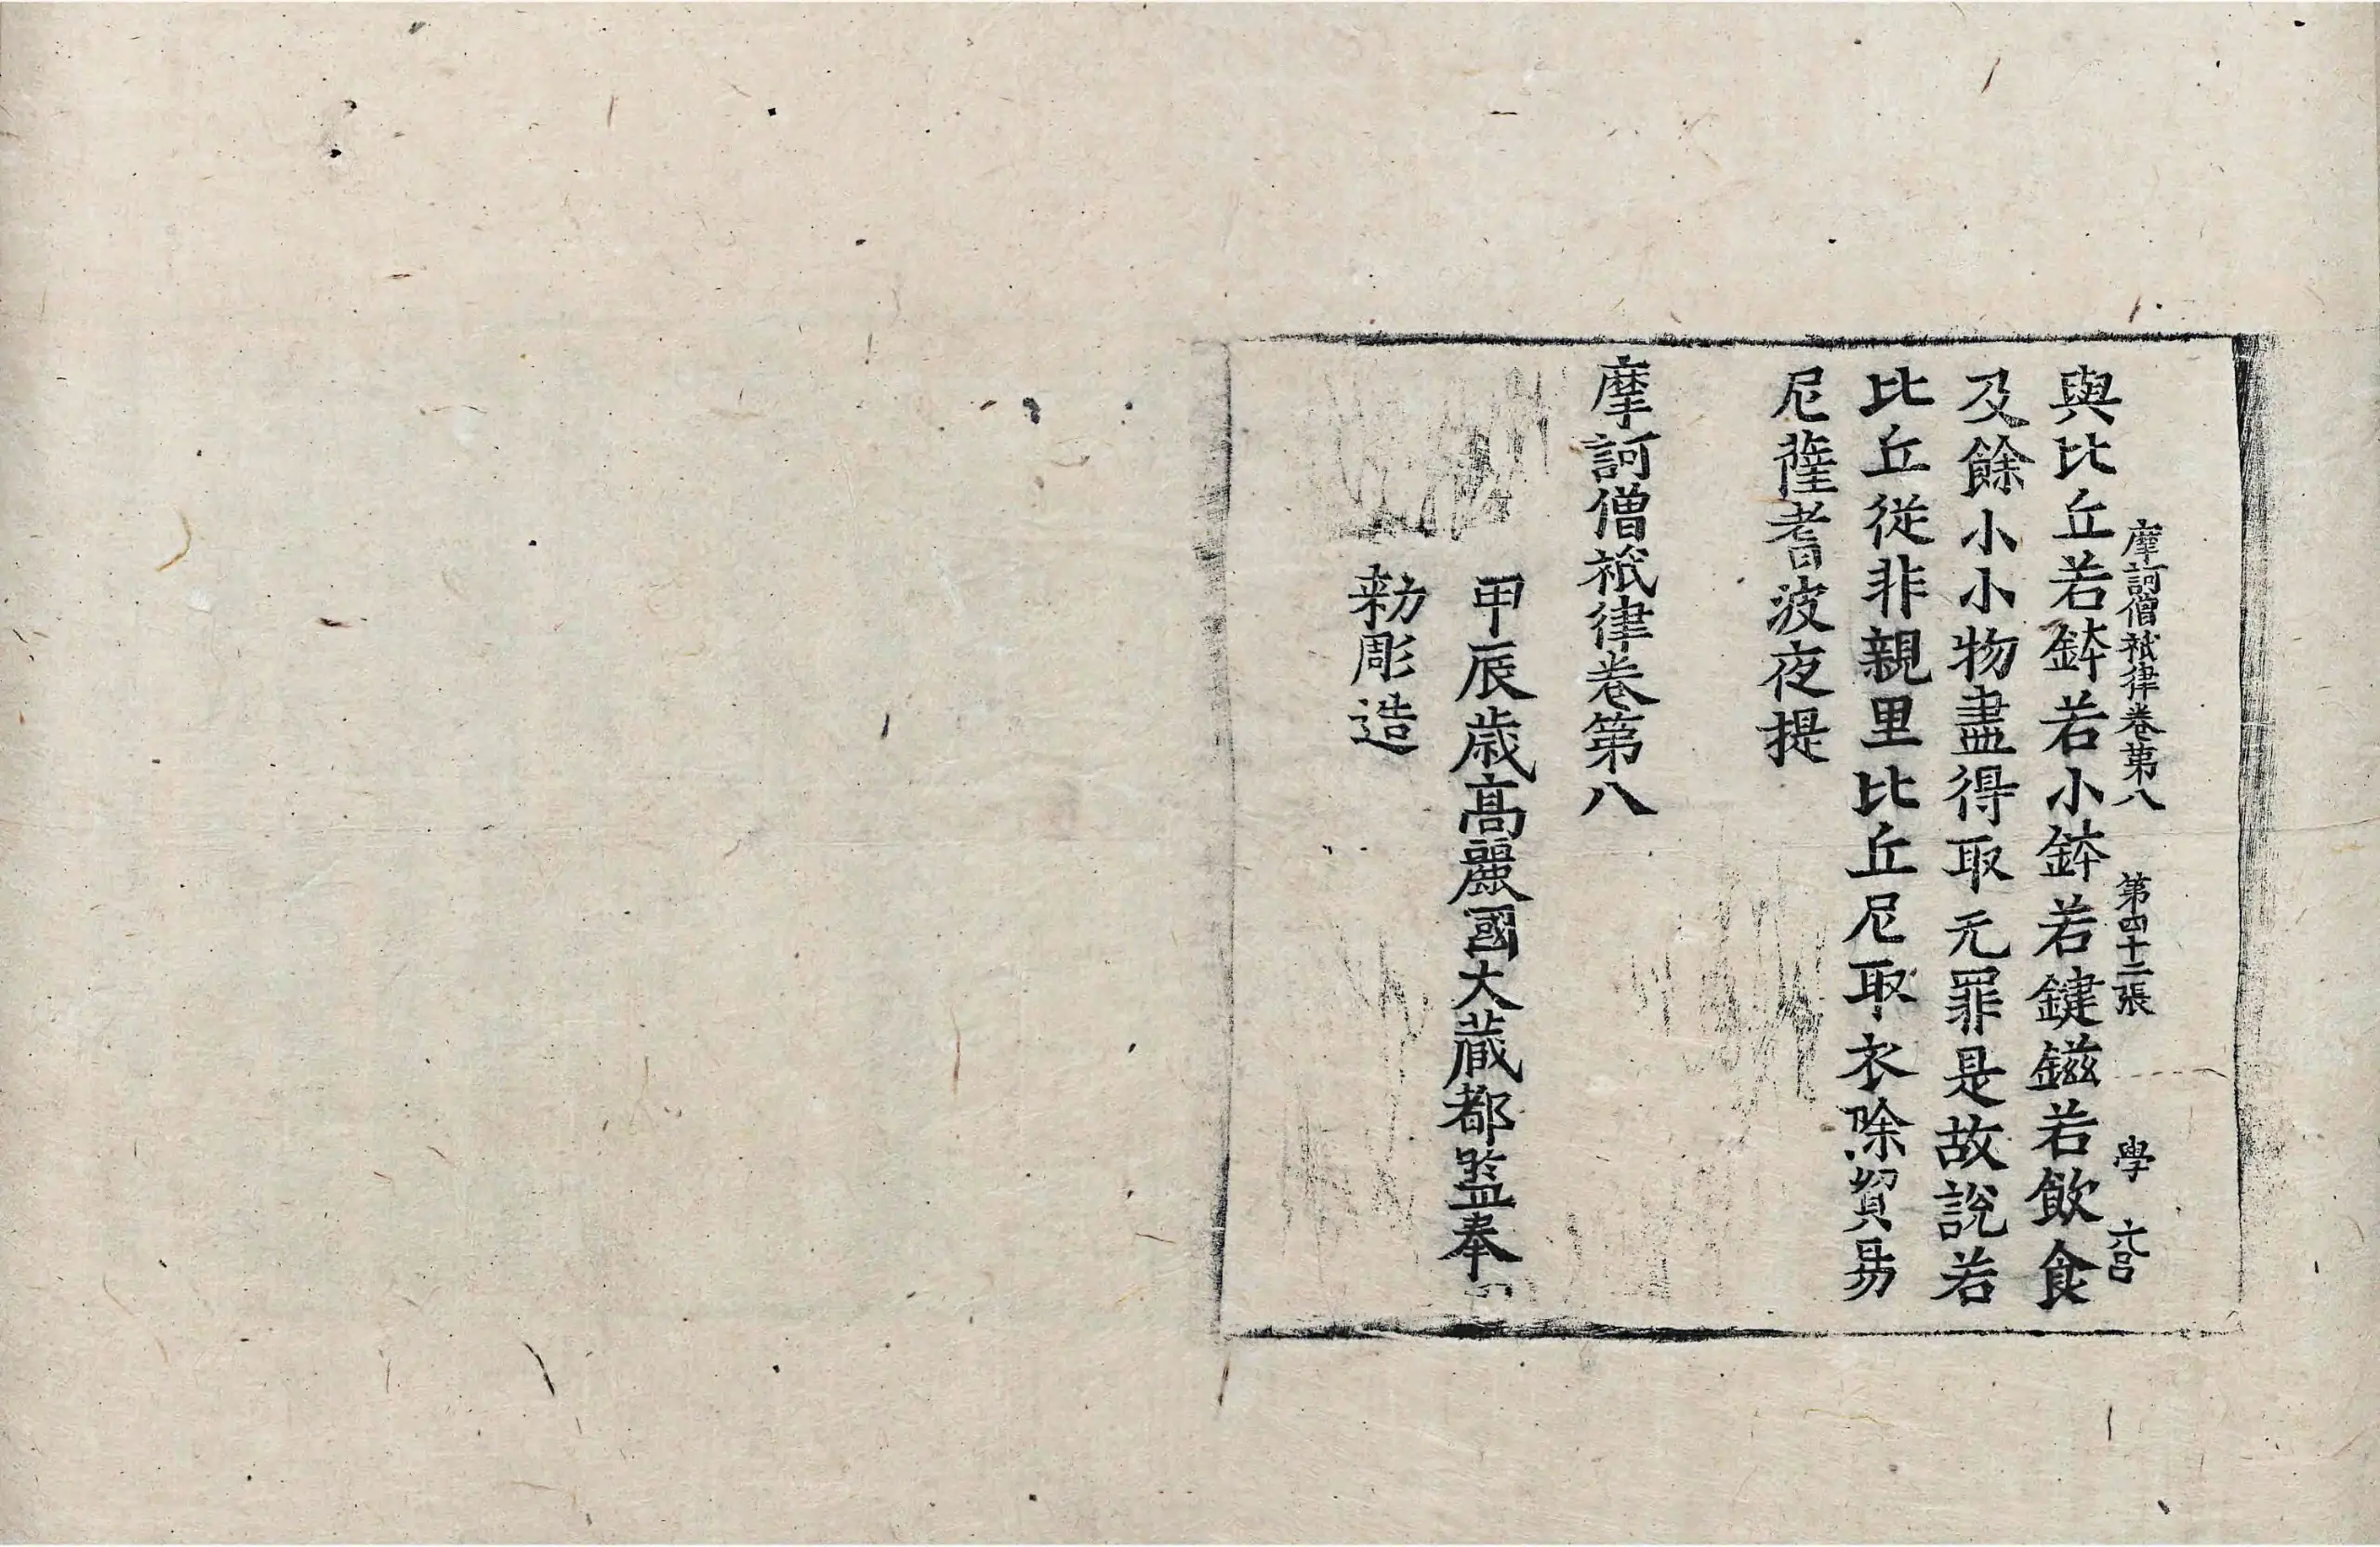 摩訶僧祇律卷第八 第四十二張 學
與比丘若鉢若小鉢若鍵鎡若飲食
及餘小小物盡得取无罪是故說若
比丘從非親里比丘尼取衣除貿易
尼薩耆波夜提
摩訶僧祇律卷第八
甲辰歲高麗國大藏都監奉
勅彫造